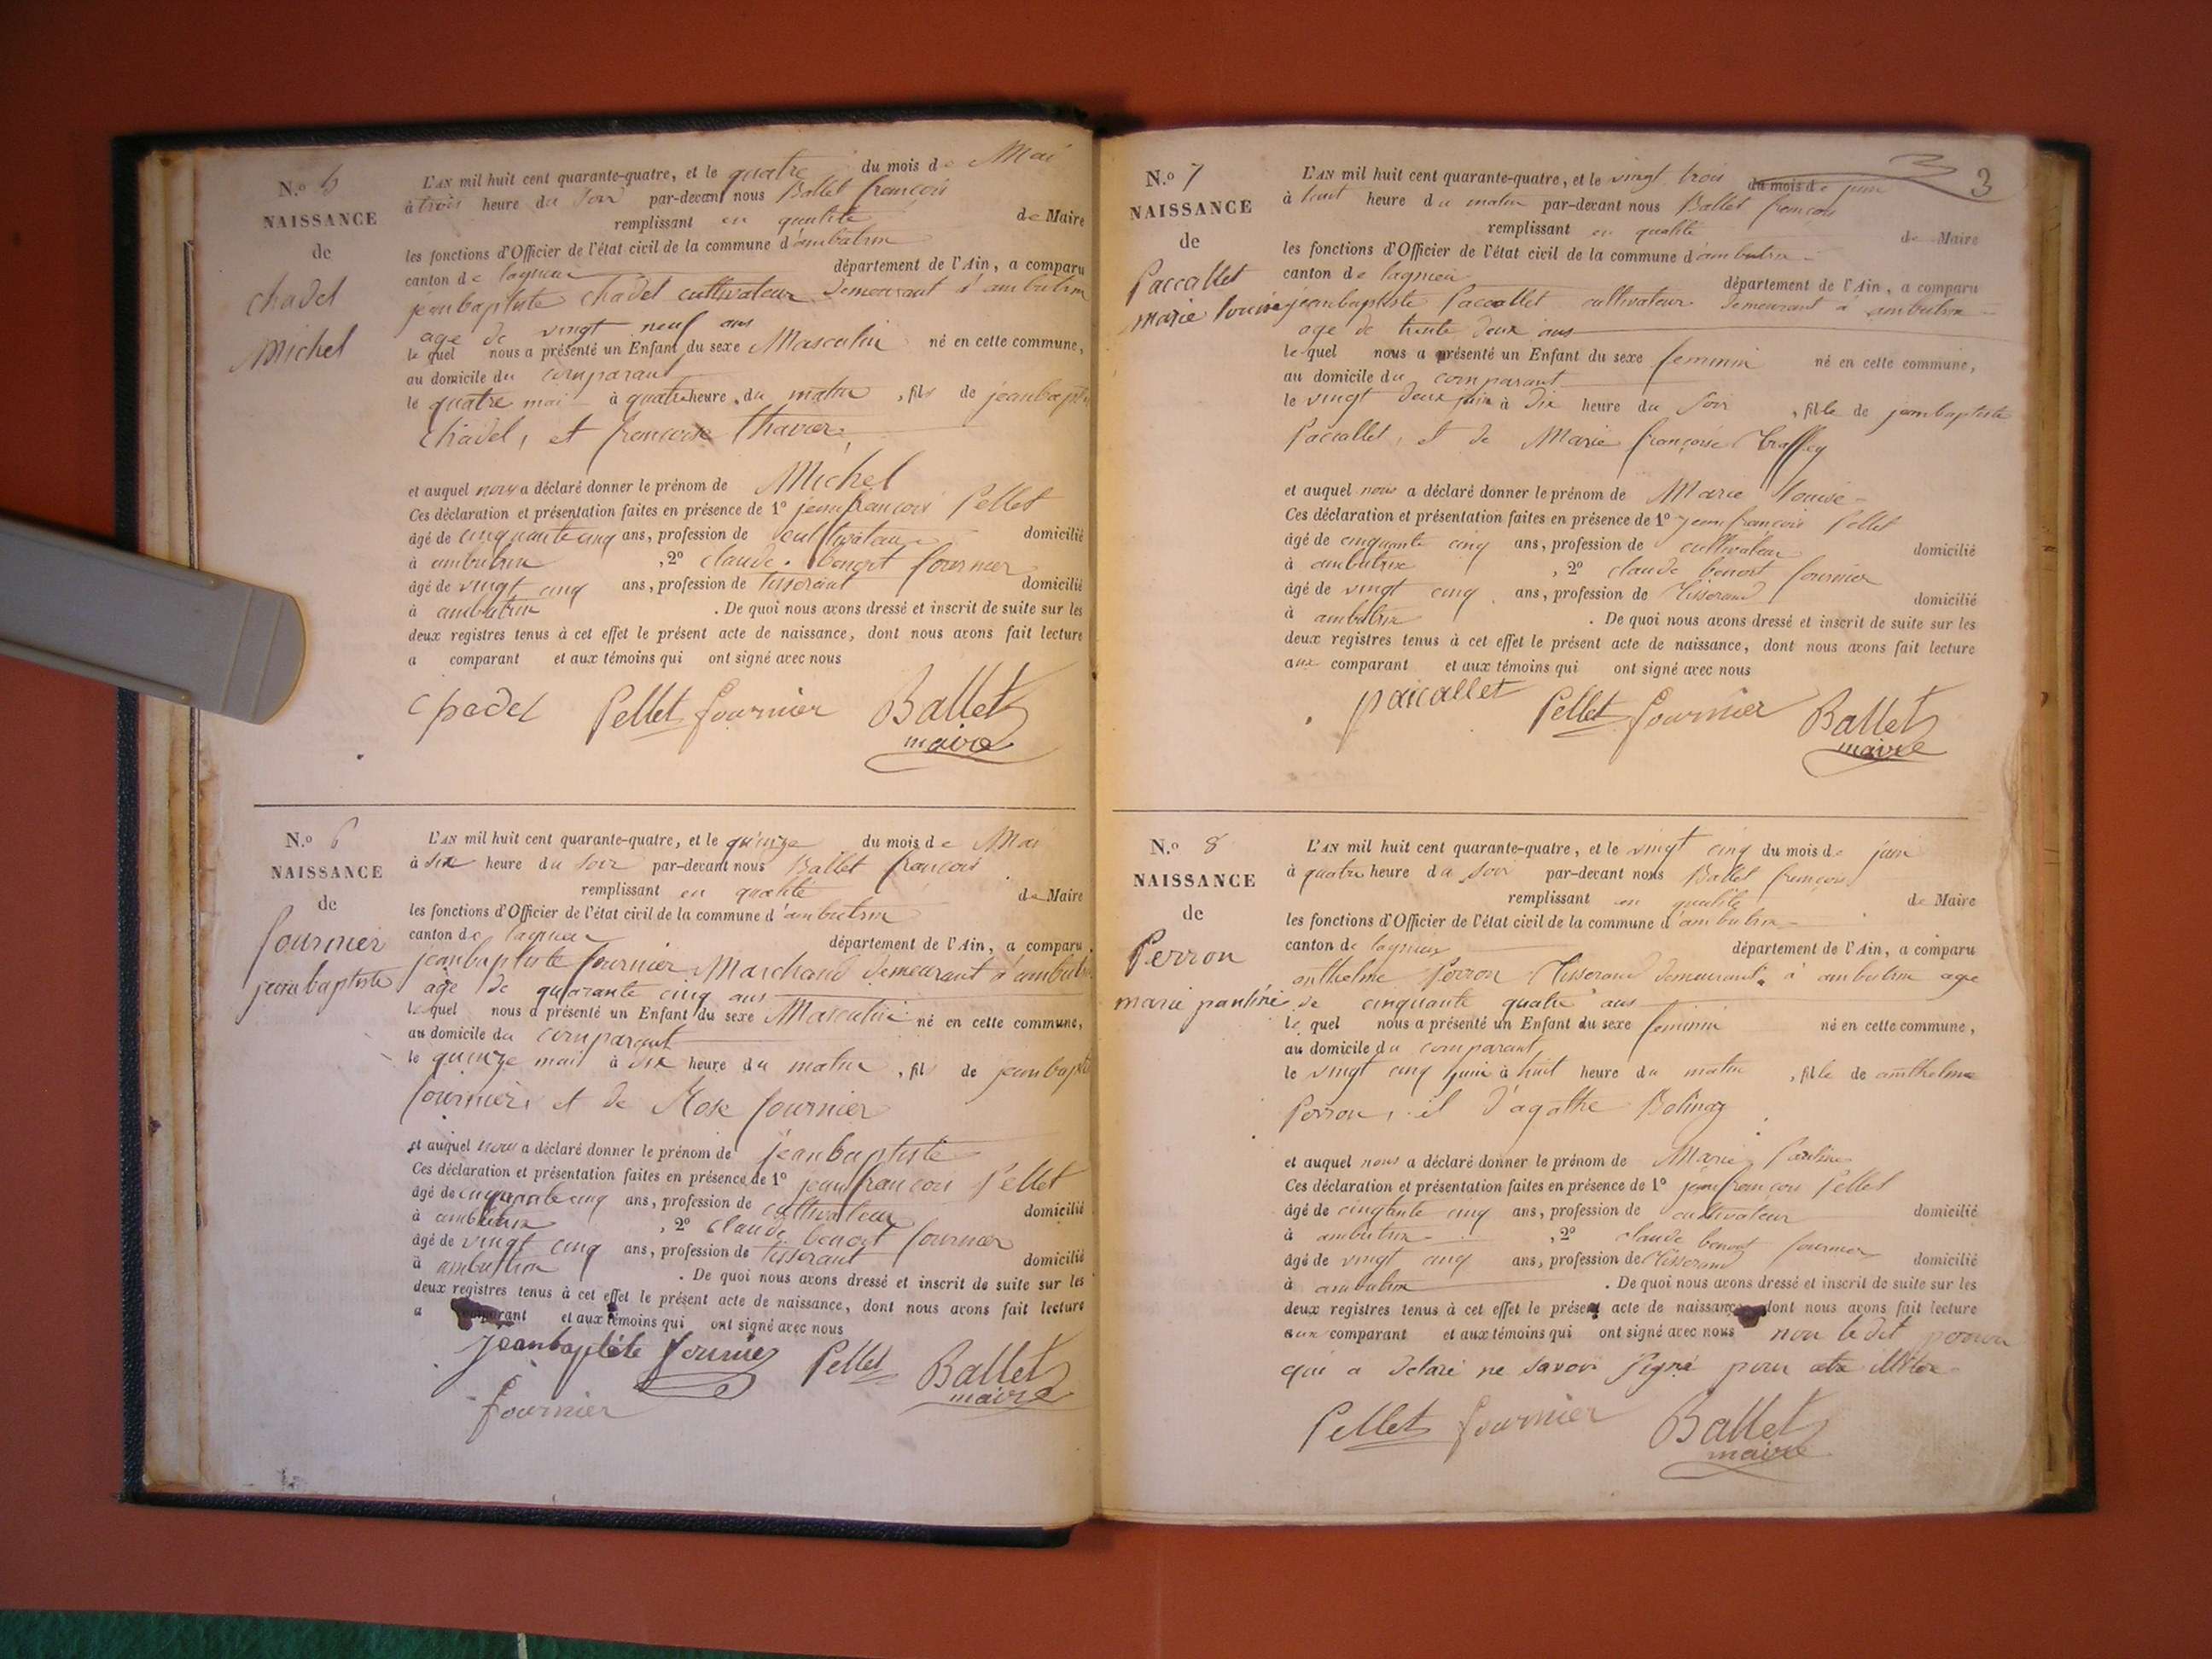 N.o 5
NAISSANCE
de
chadel
Michel
L'AN mil huit cent quarante-quatre, et le quatre du mois de Mai
à trois heure du Soir par-devant nous Ballet françois
remplissant en qualité de Maire
les fonctions d'Officier de l'état civil de la commune d'ambutrix
canton de lagnieu département de l'Ain, a comparu
jeanbaptiste chadel cultivateur demeurant d'ambutrix
age de vingt neuf ans
le quel nous a présenté un Enfant du sexe Masculin né en cette commune,
au domicile du comparant
le quatre mai à quatre heure du matin, fils de jeanbapte
chadel, et francoise
et auquel nous a déclaré donner le prénom de Michel
Ces déclaration et présentation faites en présence de 1o jeanfrancois Pellet
âgé de cinquante cinq ans, profession de cultivateur domicilié
à ambutrix, 2o claude benoit fournier
âgé de vingt cinq ans, profession de tisserant domicilié
à ambutrix. De quoi nous avons dressé et inscrit de suite sur les
deux registres tenus à cet effet le présent acte de naissance, dont nous avons fait lecture
a comparant et aux témoins qui ont signé avec nous
chadel Pellet fournier Ballet
maire
N.o 6
NAISSANCE
de
fournier
jeanbaptiste
L'AN mil huit cent quarante-quatre, et le quinze du mois de Mai
à six heure du soir par-devant nous Ballet françois
remplissant en qualité de Maire
les fonctions d'Officier de l'état civil de la commune d'ambutrix
canton de lagnieu département de l'Ain, a comparu
jeanbaptiste fournier Marchand demeurant d'ambutrix
age de quarante cinq ans
le quel nous a présenté un Enfant du sexe Masculin né en cette commune,
au domicile du comparant
le quinze mai à six heure du matin, fils de jeanbapte
fournier, et de Rose fournier
et auquel nous a déclaré donner le prénom de jeanbaptiste
Ces déclaration et présentation faites en présence de 1o jeanfrancois Pellet
âgé de cinquante cinq ans, profession de cultivateur domicilié
à ambutrix, 2o claude benoit fournier
âgé de vingt cinq ans, profession de tisserant domicilié
à ambutrix. De quoi nous avons dressé et inscrit de suite sur les
deux registres tenus à cet effet le présent acte de naissance, dont nous avons fait lecture
a comparant et aux témoins qui ont signé avec nous
jeanbaptiste fournier Pellet Ballet
maire
fournier
3
N.o 7
NAISSANCE
de
Paccallet
marie louise
L'AN mil huit cent quarante-quatre, et le vingt trois du mois de juin
à huit heure du matin par-devant nous Ballet françois
remplissant en qualité de Maire
les fonctions d'Officier de l'état civil de la commune d'ambutrix
canton de lagnieu département de l'Ain, a comparu
jeanbaptiste Paccallet cultivateur demeurant à ambutrix
age de trente deux ans
le quel nous a présenté un Enfant du sexe feminin né en cette commune,
au domicile du comparant
le vingt deux juin à dix heure du soir, fille de jeanbaptiste
Paccallet, et de Marie françoise
et auquel nous a déclaré donner le prénom de Marie Louise
Ces déclaration et présentation faites en présence de 1o jeanfrançois Pellet
âgé de cinquante cinq ans, profession de cultivateur domicilié
à ambutrix, 2o claude benoit fournier
âgé de vingt cinq ans, profession de Tisserand domicilié
à ambutrix. De quoi nous avons dressé et inscrit de suite sur les
deux registres tenus à cet effet le présent acte de naissance, dont nous avons fait lecture
aux comparant et aux témoins qui ont signé avec nous
paicallet Pellet fournier Ballet
maire
N.o 8
NAISSANCE
de
Perron
marie pauline
L'AN mil huit cent quarante-quatre, et le vingt cinq du mois de juin
à quatre heure du soir par-devant nous Ballet françois
remplissant en qualité de Maire
les fonctions d'Officier de l'état civil de la commune d'ambutrix
canton de lagnieu département de l'Ain, a comparu
anthelme Perron Tisserand demeurant à ambutrix age
de cinquante quatre ans
le quel nous a présenté un Enfant du sexe feminin né en cette commune,
au domicile du comparant
le vingt cinq juin à huit heure du matin, fille de anthelme
Perron, et d'agathe
et auquel nous a déclaré donner le prénom de Marie Pauline
Ces déclaration et présentation faites en présence de 1o jeanfrançois Pellet
âgé de cinqante cinq ans, profession de cultivateur domicilié
à ambutrix, 2o claude benoit fournier
âgé de vingt cinq ans, profession de Tisserand domicilié
à ambutrix. De quoi nous avons dressé et inscrit de suite sur les
deux registres tenus à cet effet le présent acte de naissance, dont nous avons fait lecture
aux comparant et aux témoins qui ont signé avec nous non le dit perron
qui a declaré ne savoir signé pour
Pellet fournier Ballet
maire